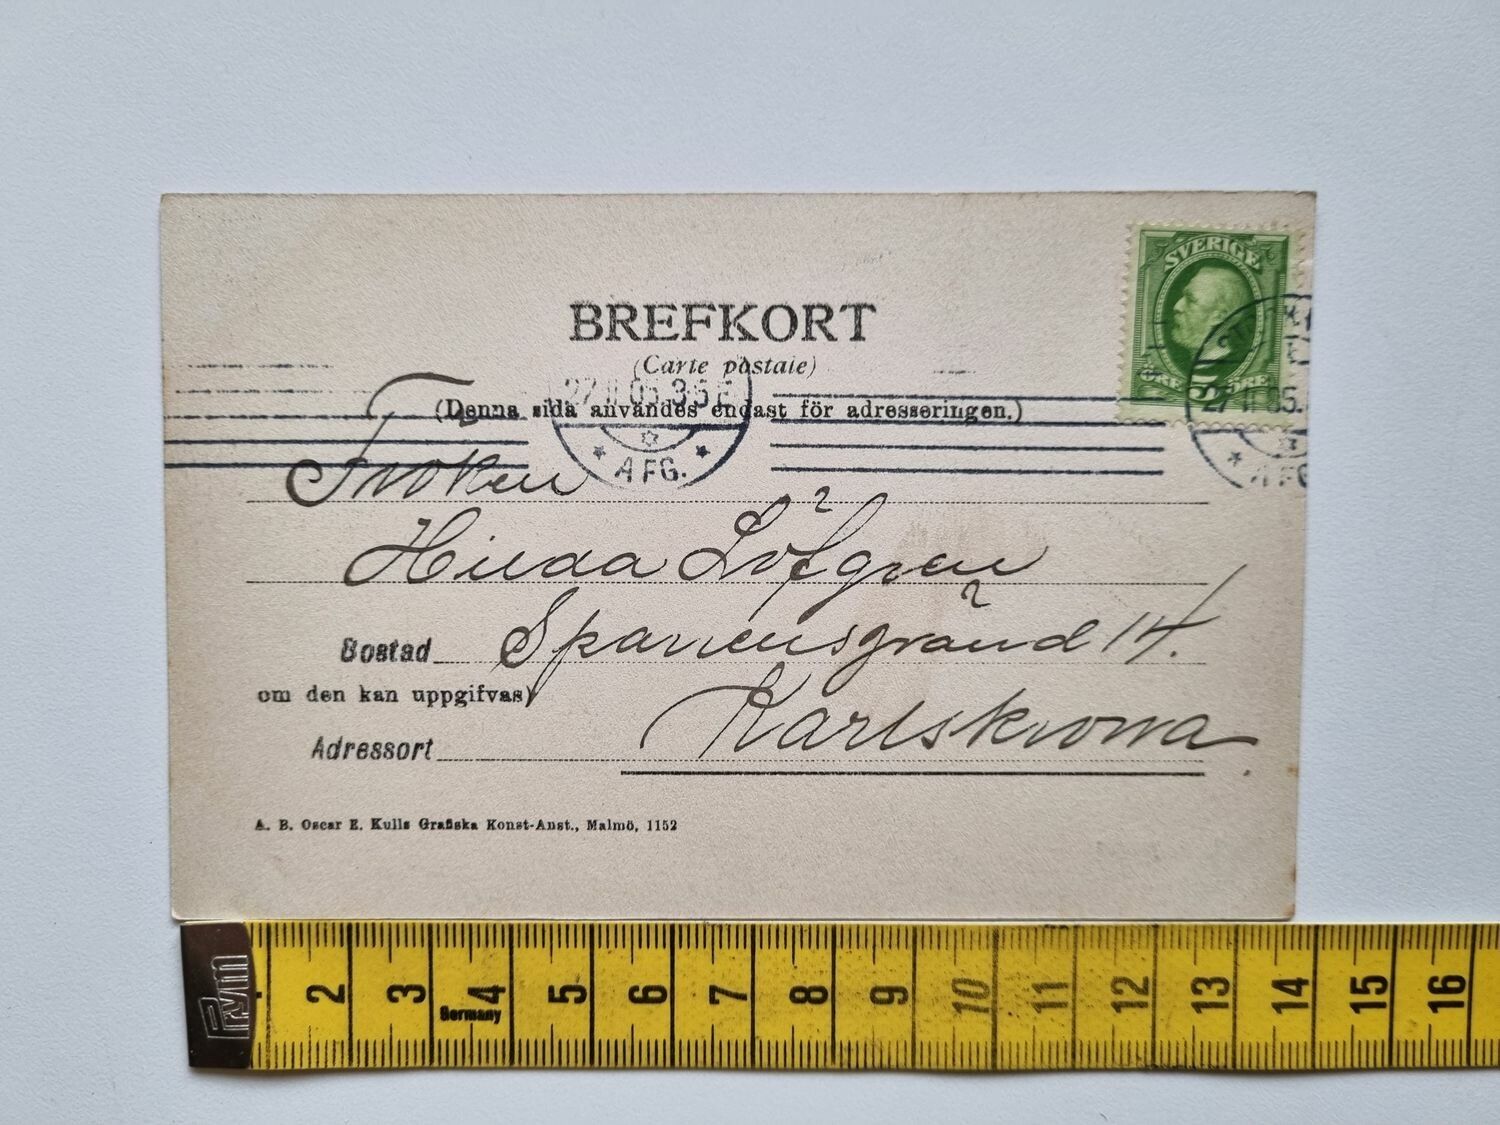 SVERIGE
5
ÖRE ÖRE
BREFKORT
(Carte postale)
27 11 05. 3 5 E
27 11 05.
(Denna sida användes endast för adresseringen.)
AFG.
AFG
Fröken
Hilda Löfgren
Bostad Sparrensgränd 14.
om den kan uppgifvas)
Adressort Karlskrona.
A. B. Oscar E. Kulls Grafiska Konst-Anst., Malmö, 1152
Prym 2 3 4 5 6 7 8 9 10 11 12 13 14 15 16
Germany